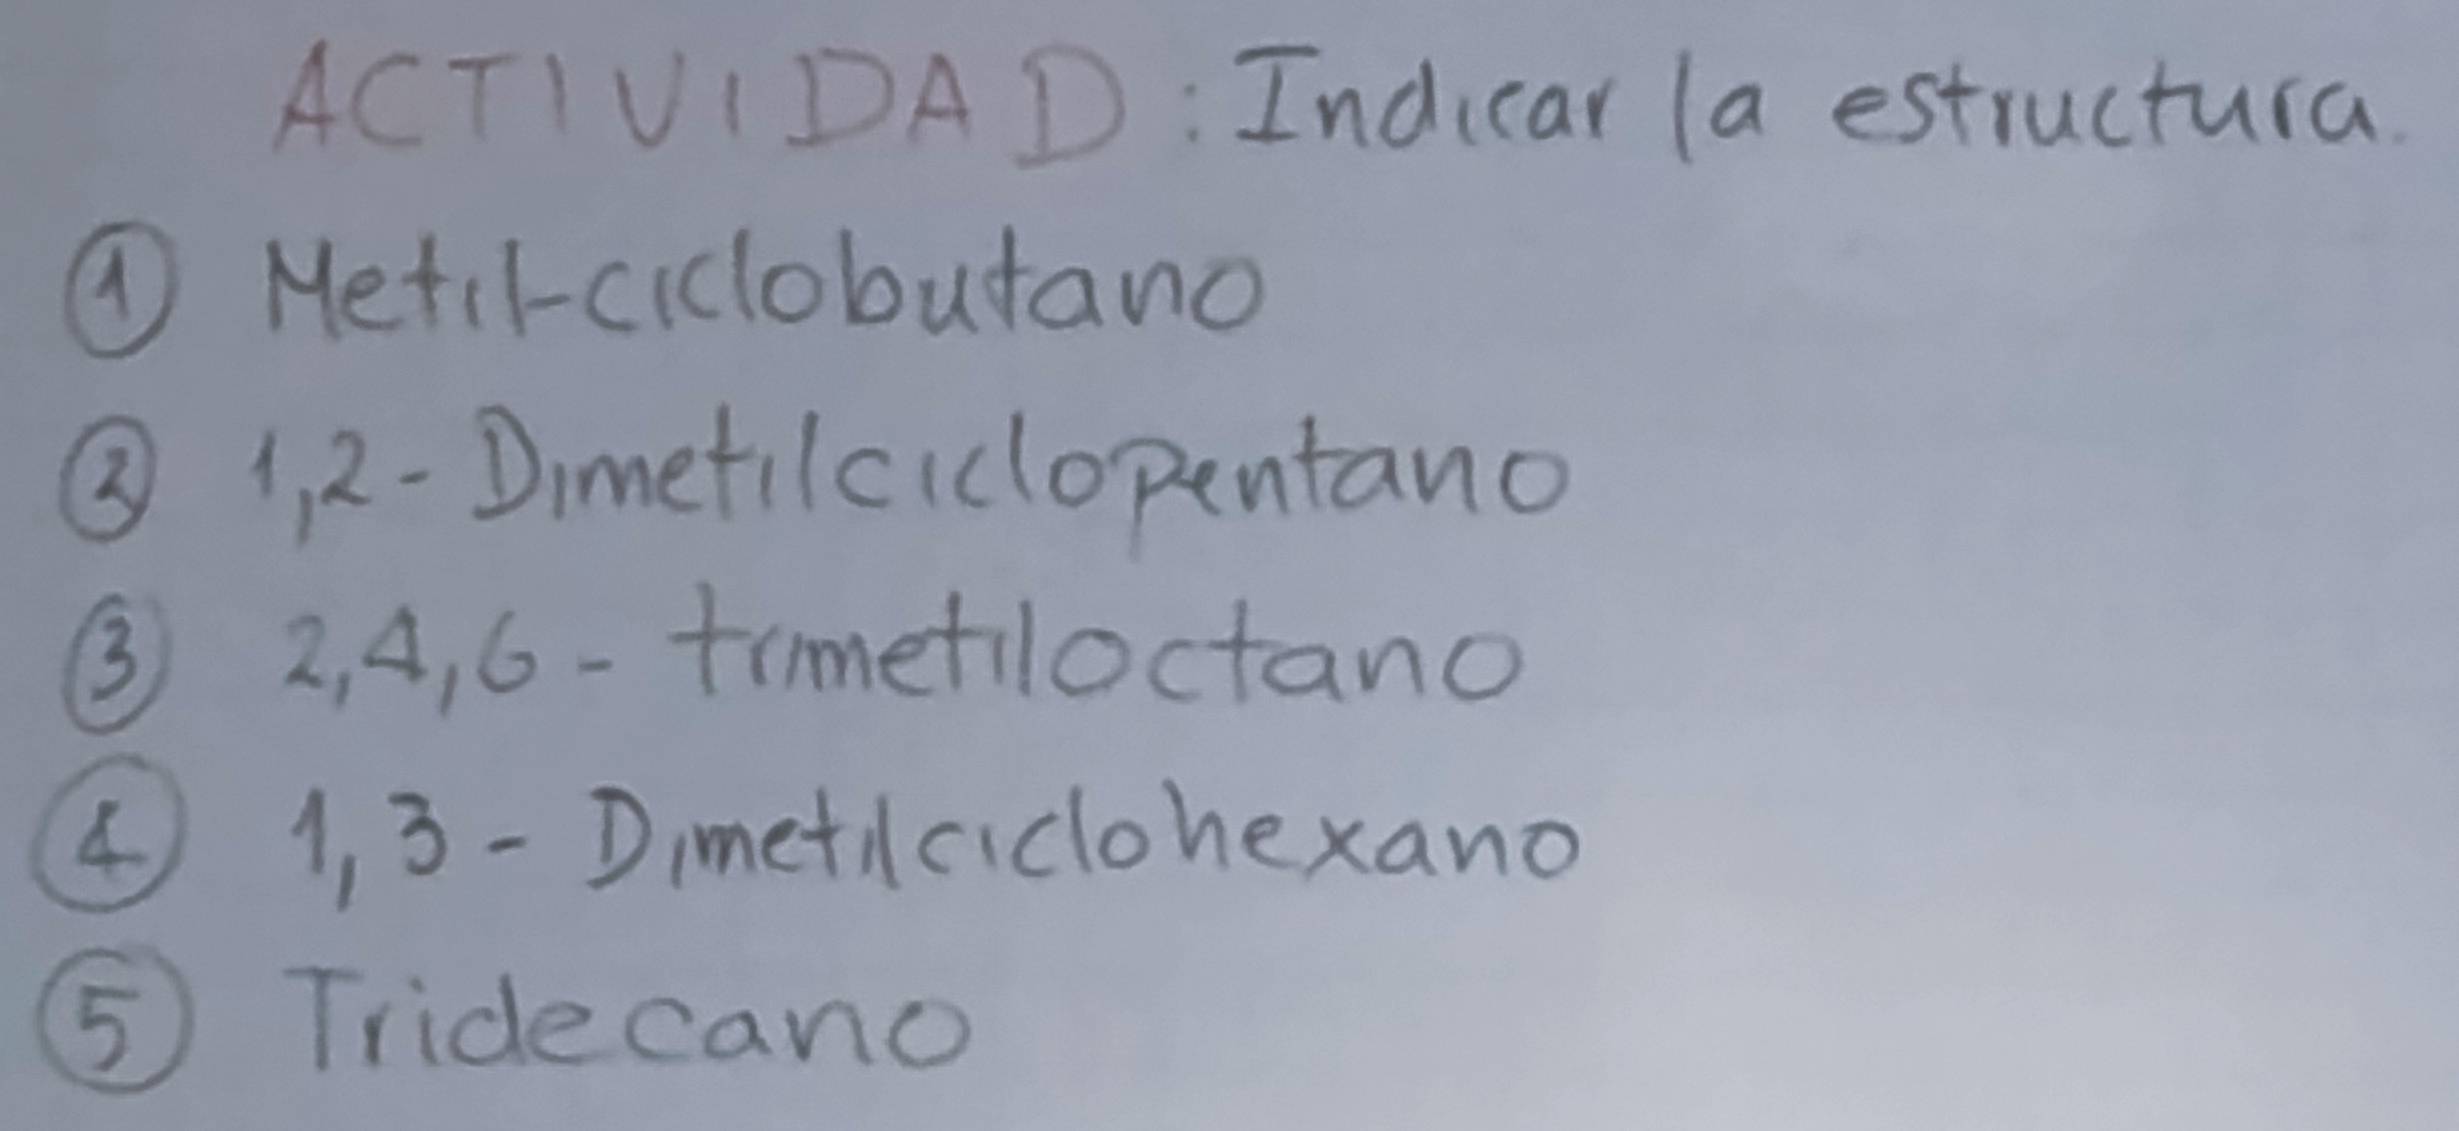 ACTIVIDAD: Indicar la estructura.
① Metil-ciclobutano
② 1,2-Dimetilciclopentano
③ 2,4,6-trimetiloctano
④ 1,3-Dimetilciclohexano
⑤ Tridecano